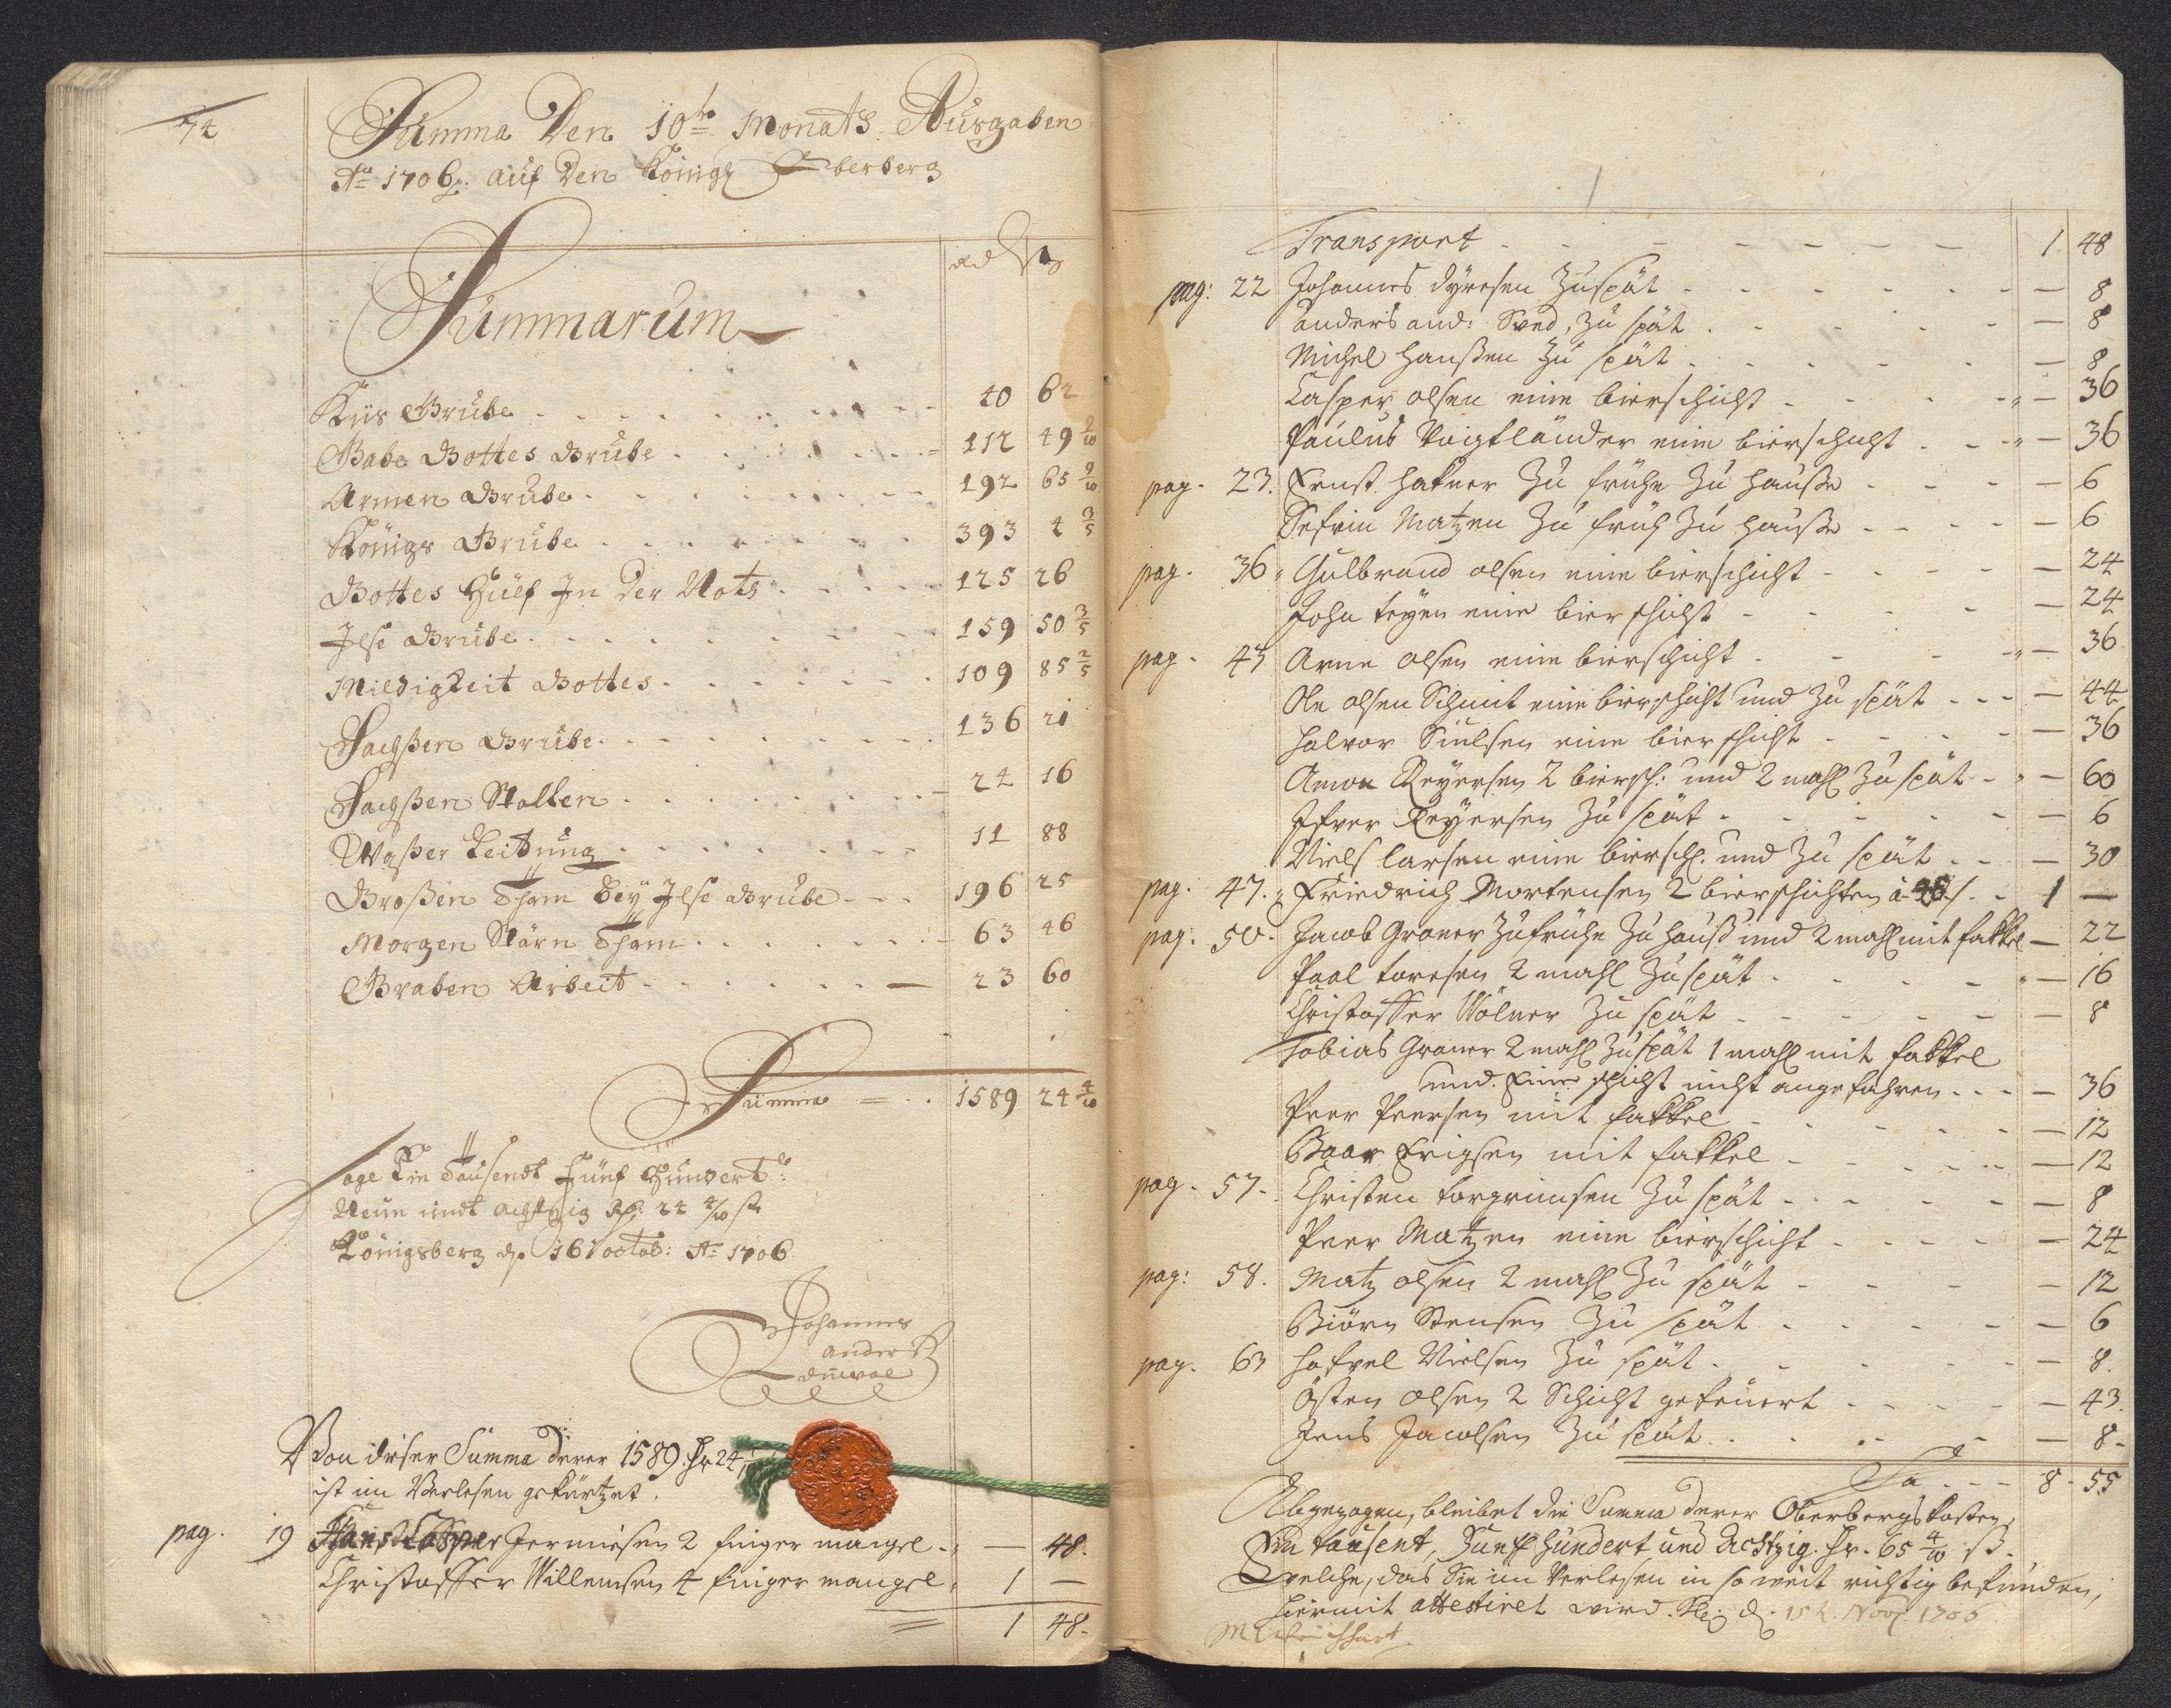 74
Summa Den 10te Monats Ausgaben
Ao 1706. auf Den Königl Oberberg
Rd ß
Summarum
Kiis Grube 40 62
Gabe Gottes Grube 112 49 9/10
Armen Grube 192 65 9/10
Königs Grube 393 4 3/5
Gottes Hülf In Der Noth 125 26
Ilse Grube 159 50 3/5
Mildigkeit Gottes 109 85 2/5
Sachßen Grube 136 21
Sachßen Stollen 24 16
Waßer Leittung 11 88
Großen Tham bey Ilse Grube 196 25
Morgen Stärn Tham 63 46
Graben Arbeit 23 60
Summa 1589 24 4/10
Sage Ein Tausendt Fünf Hundert
Neun undt achtzig Rd: 24 4/10 ß
Königsberg d. 16 octob: Ao 1706
Johannes
Anders
Von dieser Summa derer 1589. Hr 24
ist im Verlesen gekürtzet.
pag. 19 Jermiesen 2 finger mangel — 48.
Christoffer Willemsen 4 finger mangel 1 —
1 48.
Transport 1 48
pag: 22 Johannes Dyresen Zu spät — 8
Anders And: Sved, Zu spät — 8
Michel Hanßen Zu spät — 8
Casper Olsen eine bierschicht — 36
Paulus Voigtländer eine bierschicht — 36
pag. 23. Ernst Hafner Zu frühe Zu Hauße — 6
Sefrin Matzen Zu früh Zu Hauße — 6
pag. 36 Gulbrand Olsen eine bierschicht — 24
John eine bierschicht — 24
pag. 43 Arne Olsen eine bierschicht — 36
Ole Olsen Schmit eine bierschicht und Zu spät — 44
Halvor eine bierschicht — 36
Amon Reyersen 2 biersch: und 2 mahl Zu spät — 60
Ifver Reyersen Zu spät — 6
Niels Larsen eine biersch. und Zu spät — 30
pag. 47. Friedrich Mortensen 2 bierschichten à 48 ß. 1 —
pag. 50. Jacob Groner Zu frühe Zu Hauß und 2 mahl mit fakkel — 22
Paal Toresen 2 mahl Zu spät — 16
Christoffer Wölner Zu spät — 8
Tobias Groner 2 mahl Zu spät 1 mahl mit fakkel
und Eine schicht nicht angefahren — 36
Peer Peersen mit fakkel — 12
Baar Erigsen mit fakkel — 12
pag. 57. Christen Torgrimsen Zu spät — 8
Peer Matzen eine bierschicht — 24
pag: 58. Matz Olsen 2 mahl Zu spät — 12
Biörn Stensen Zu spät — 6
pag. 63 Nielsen Zu spät — 8.
Östen Olsen 2 Schicht gefeuert — 43.
Jens Jacobsen Zu spät — 8.
Sa 8 55
Abgezogen, bleibet die Summa derer Oberbergskosten,
Ein tausent, Fünf Hundert und Achtzig Hr. 65 4/10 ß.
Welche, das Sie im Verlesen in so weit richtig befunden,
hiermit attestiret wird. d. 15t. Nov. 1706